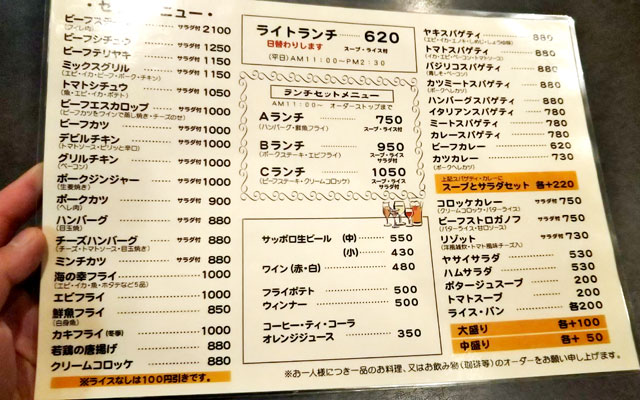 ・セ ニュー・
ビーフステーキ サラダ付 2100
(フィレ肉)
ビーフシチュウ サラダ付 1250
ビーフテリヤキ サラダ付 1150
ミックスグリル サラダ付 1150
(エビ・イカ・ビーフ・ポーク・チキン)
トマトシチュウ サラダ付 1050
(魚・エビ・イカ・ポテト)
ビーフエスカロップ サラダ付 1000
(ビーフカツをワインで蒸し焼き・チーズのせ)
ビーフカツ サラダ付 1000
デビルチキン サラダ付 1000
(トマトソース・ピリッと辛口)
グリルチキン サラダ付 1000
(ベーコン)
ポークジンジャー サラダ付 1000
(生姜焼き)
ポークカツ サラダ付 900
(ヘレ肉)
ハンバーグ サラダ付 880
(目玉焼)
チーズハンバーグ サラダ付 880
(チーズ・トマトソース・目玉焼き)
ミンチカツ サラダ付 880
海の幸フライ 1000
(エビ・イカ・魚・ホタテなど5品)
エビフライ 1000
鮮魚フライ 850
(白身魚)
カキフライ(冬季) 1000
若鶏の唐揚げ 880
クリームコロッケ 880
※ライスなしは100円引きです。
ライトランチ 620
日替わりします スープ・ライス付
(平日)AM11:00〜PM2:30
ランチセットメニュー
AM11:00〜 オーダーストップまで
Aランチ 750
(ハンバーグ・鮮魚フライ) スープ・ライス付
Bランチ 950
(ポークステーキ・エビフライ) スープ・ライス サラダ付
Cランチ 1050
(ビーフステーキ・クリームコロッケ) スープ・ライス サラダ付
サッポロ生ビール (中) 550
(小) 430
ワイン(赤・白) 480
フライポテト 500
ウィンナー 500
コーヒー・ティ・コーラ
オレンジジュース 350
ヤキスパゲティ 880
(エビ・イカ・エノキ・しめじ・しょうゆ味)
トマトスパゲティ 880
(エビ・イカ・ベーコン・トマトソース)
バジリコスパゲティ 880
(青しそ・ベーコン)
カツミートスパゲティ 880
(ポークヘレカツ)
ハンバーグスパゲティ 880
イタリアンスパゲティ 780
ミートスパゲティ 780
カレースパゲティ 780
ビーフカレー 620
カツカレー 730
(ポークヘレカツ)
上記スパゲティ・カレーに
スープとサラダセット 各+220
コロッケカレー サラダ付 750
(クリームコロッケ・バターライス)
ビーフストロガノフ サラダ付 750
(バターライス・甘口ソース)
リゾット サラダ付 730
(洋風雑炊・トマト風味チーズ入)
ヤサイサラダ 530
ハムサラダ 530
ポタージュスープ 200
トマトスープ 200
ライス・パン 各200
大盛り 各+100
中盛り 各+ 50
※お一人様につき一品のお料理、又はお飲み物(珈琲等)のオーダーをお願い申し上げます。